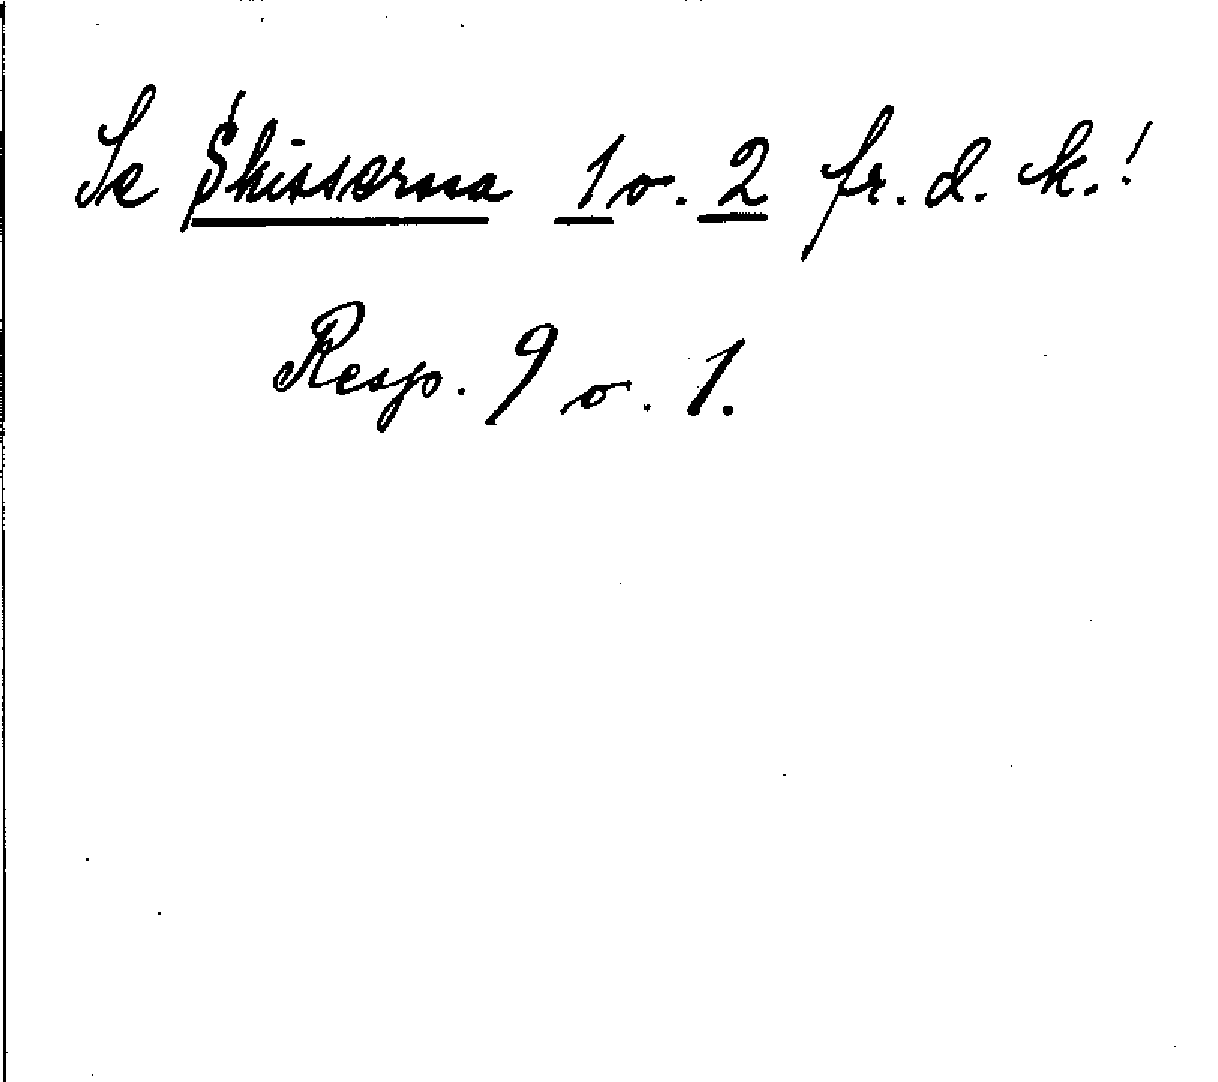 Se Skisserna 1 o. 2 fr. d. k.!
Resp. 9 o. 1.